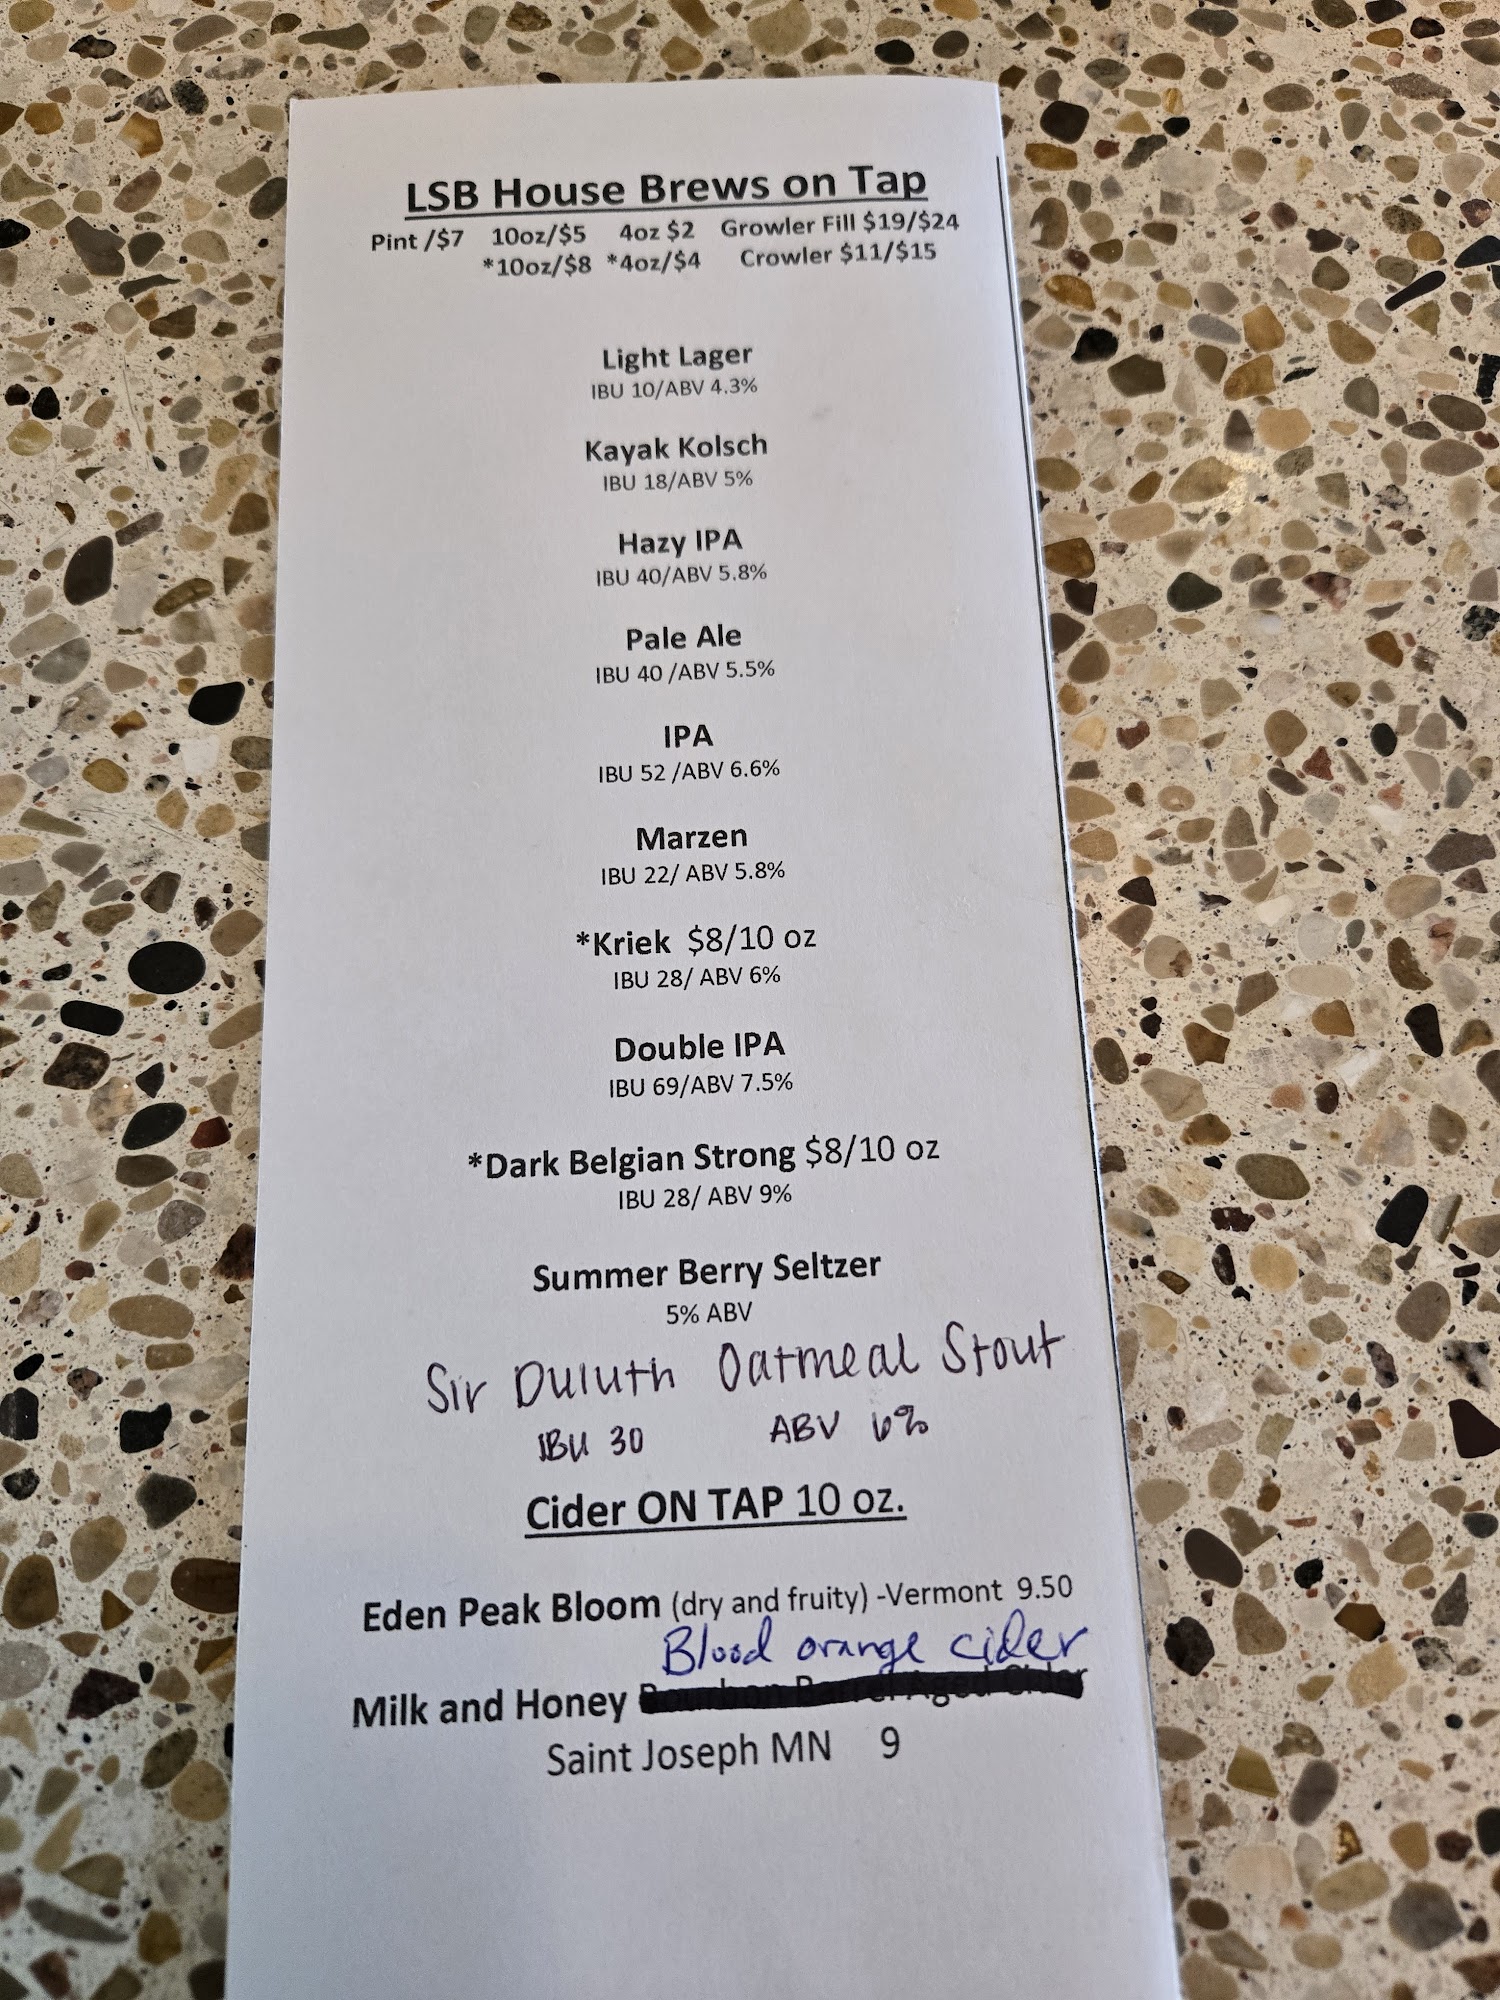 LSB House Brews on Tap
Pint /$7 10oz/$5 4oz $2 Growler Fill $19/$24
*10oz/$8 *4oz/$4 Crowler $11/$15
Light Lager
IBU 10/ABV 4.3%
Kayak Kolsch
IBU 18/ABV 5%
Hazy IPA
IBU 40/ABV 5.8%
Pale Ale
IBU 40 /ABV 5.5%
IPA
IBU 52 /ABV 6.6%
Marzen
IBU 22/ ABV 5.8%
*Kriek $8/10 oz
IBU 28/ ABV 6%
Double IPA
IBU 69/ABV 7.5%
*Dark Belgian Strong $8/10 oz
IBU 28/ ABV 9%
Summer Berry Seltzer
5% ABV
Sir Duluth Oatmeal Stout
IBU 30 ABV 6%
Cider ON TAP 10 oz.
Eden Peak Bloom (dry and fruity) -Vermont 9.50
Blood orange cider
Milk and Honey Bourbon Barrel Aged Cider
Saint Joseph MN 9